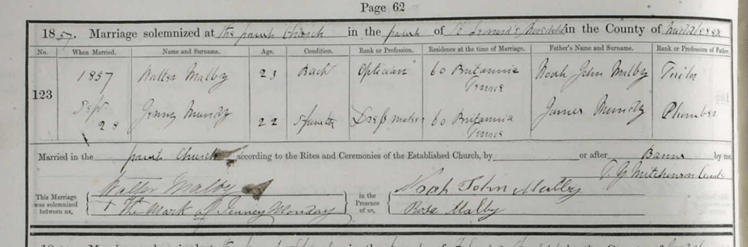 Page 62
1857. Marriage solemnized at The parish Church in the parish of St Leonard's Shoreditch in the County of Middlesex
No. When Married. Name and Surname. Age. Condition. Rank or Profession. Residence at the time of Marriage. Father's Name and Surname. Rank or Profession of Father.
123 1857 Walter Malby 23 Bach Optician 60 Britannia Noah John Malby
Sept Terrace
28 Jenny Mundy 22 Spinster Dress maker 60 Britannia James Mundy Plumber
Married in the parish Church according to the Rites and Ceremonies of the Established Church, by or after Banns by me,
This Marriage was solemnized between us, Walter Malby in the Presence of us, Noah John Malby
The Mark of Jenney Monday Rose Malby
18 Marriage solemnized at in the of in the County of